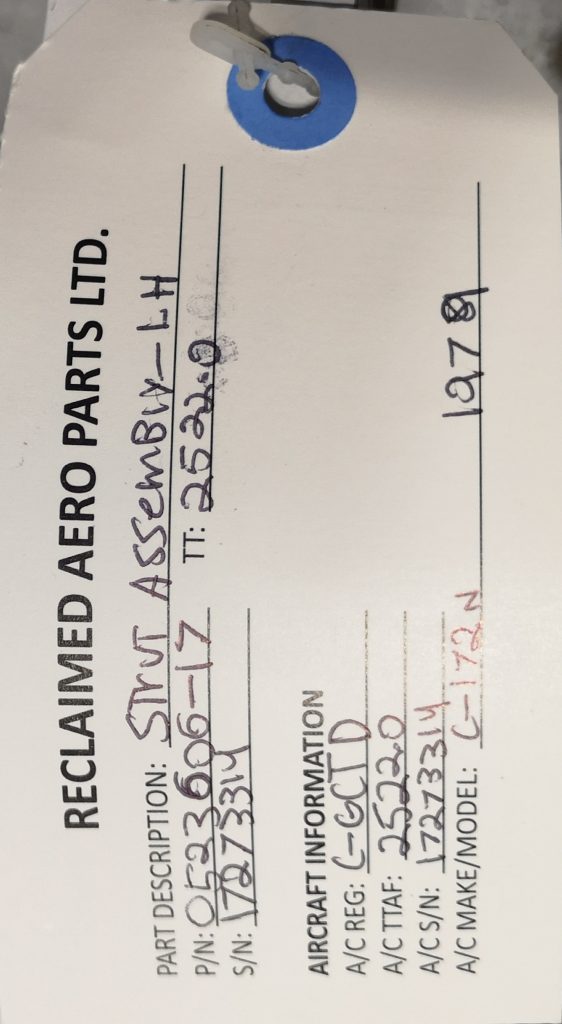 RECLAIMED AERO PARTS LTD.
PART DESCRIPTION: STrUT ASSemBly-LH
P/N: 0523606-17 TT: 2522.0
S/N: 17273314
AIRCRAFT INFORMATION
A/C REG: C-GCTD
A/C TTAF: 2522.0
A/C S/N: 17273314
A/C MAKE/MODEL: C-172N 1979